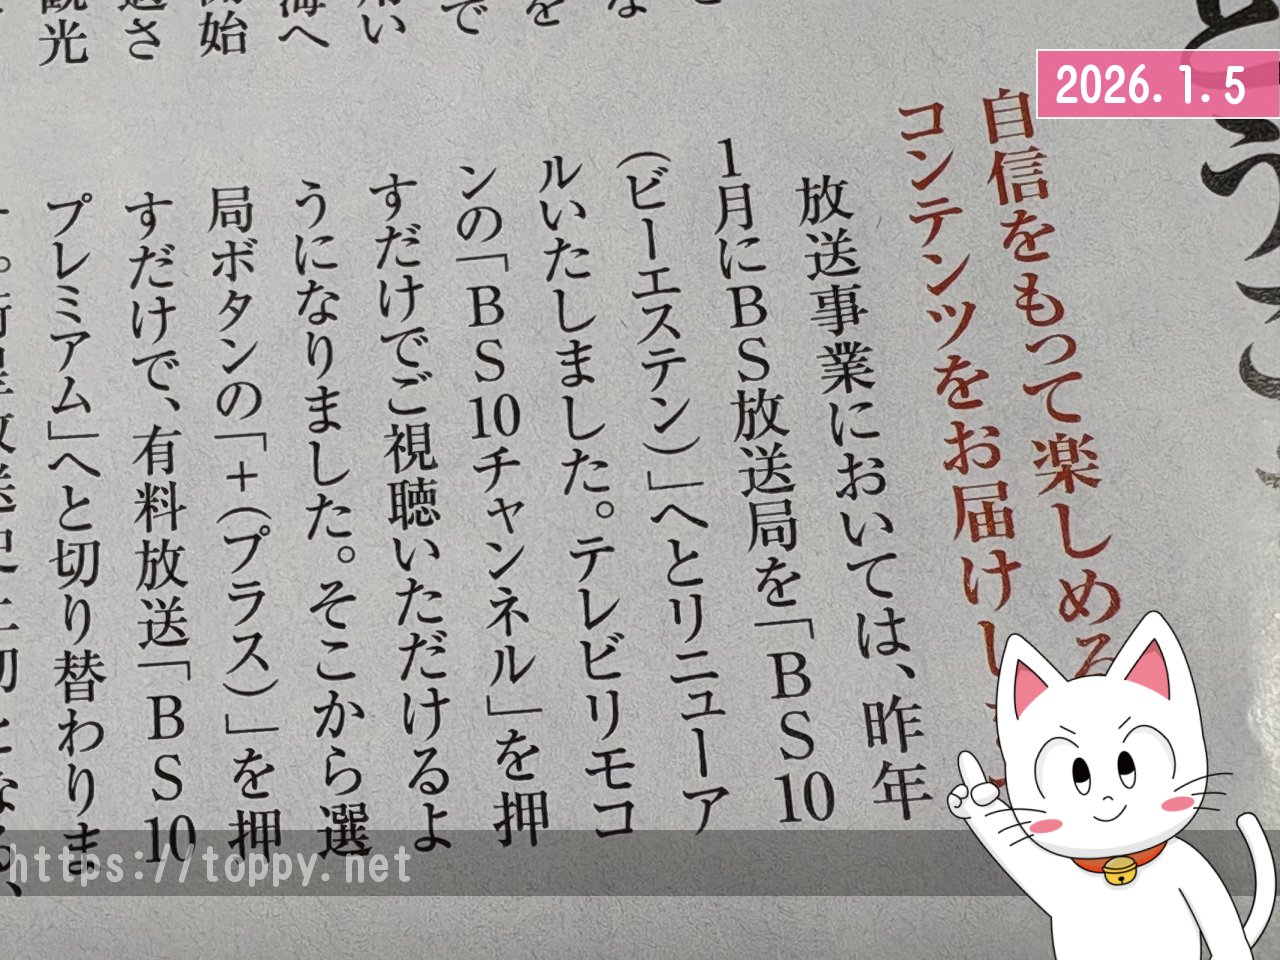 2026.1.5
とう
自信をもって楽しめる
コンテンツをお届けし
放送事業においては、昨年
1月にBS放送局を「BS10
（ビーエステン）」へとリニューア
ルいたしました。テレビリモコ
ンの「BS10チャンネル」を押
すだけでご視聴いただけるよ
うになりました。そこから選
局ボタンの「＋（プラス）」を押
すだけで、有料放送「BS10
プレミアム」へと切り替わりま
を
で
い
海へ
始
さ
観光
https://toppy.net